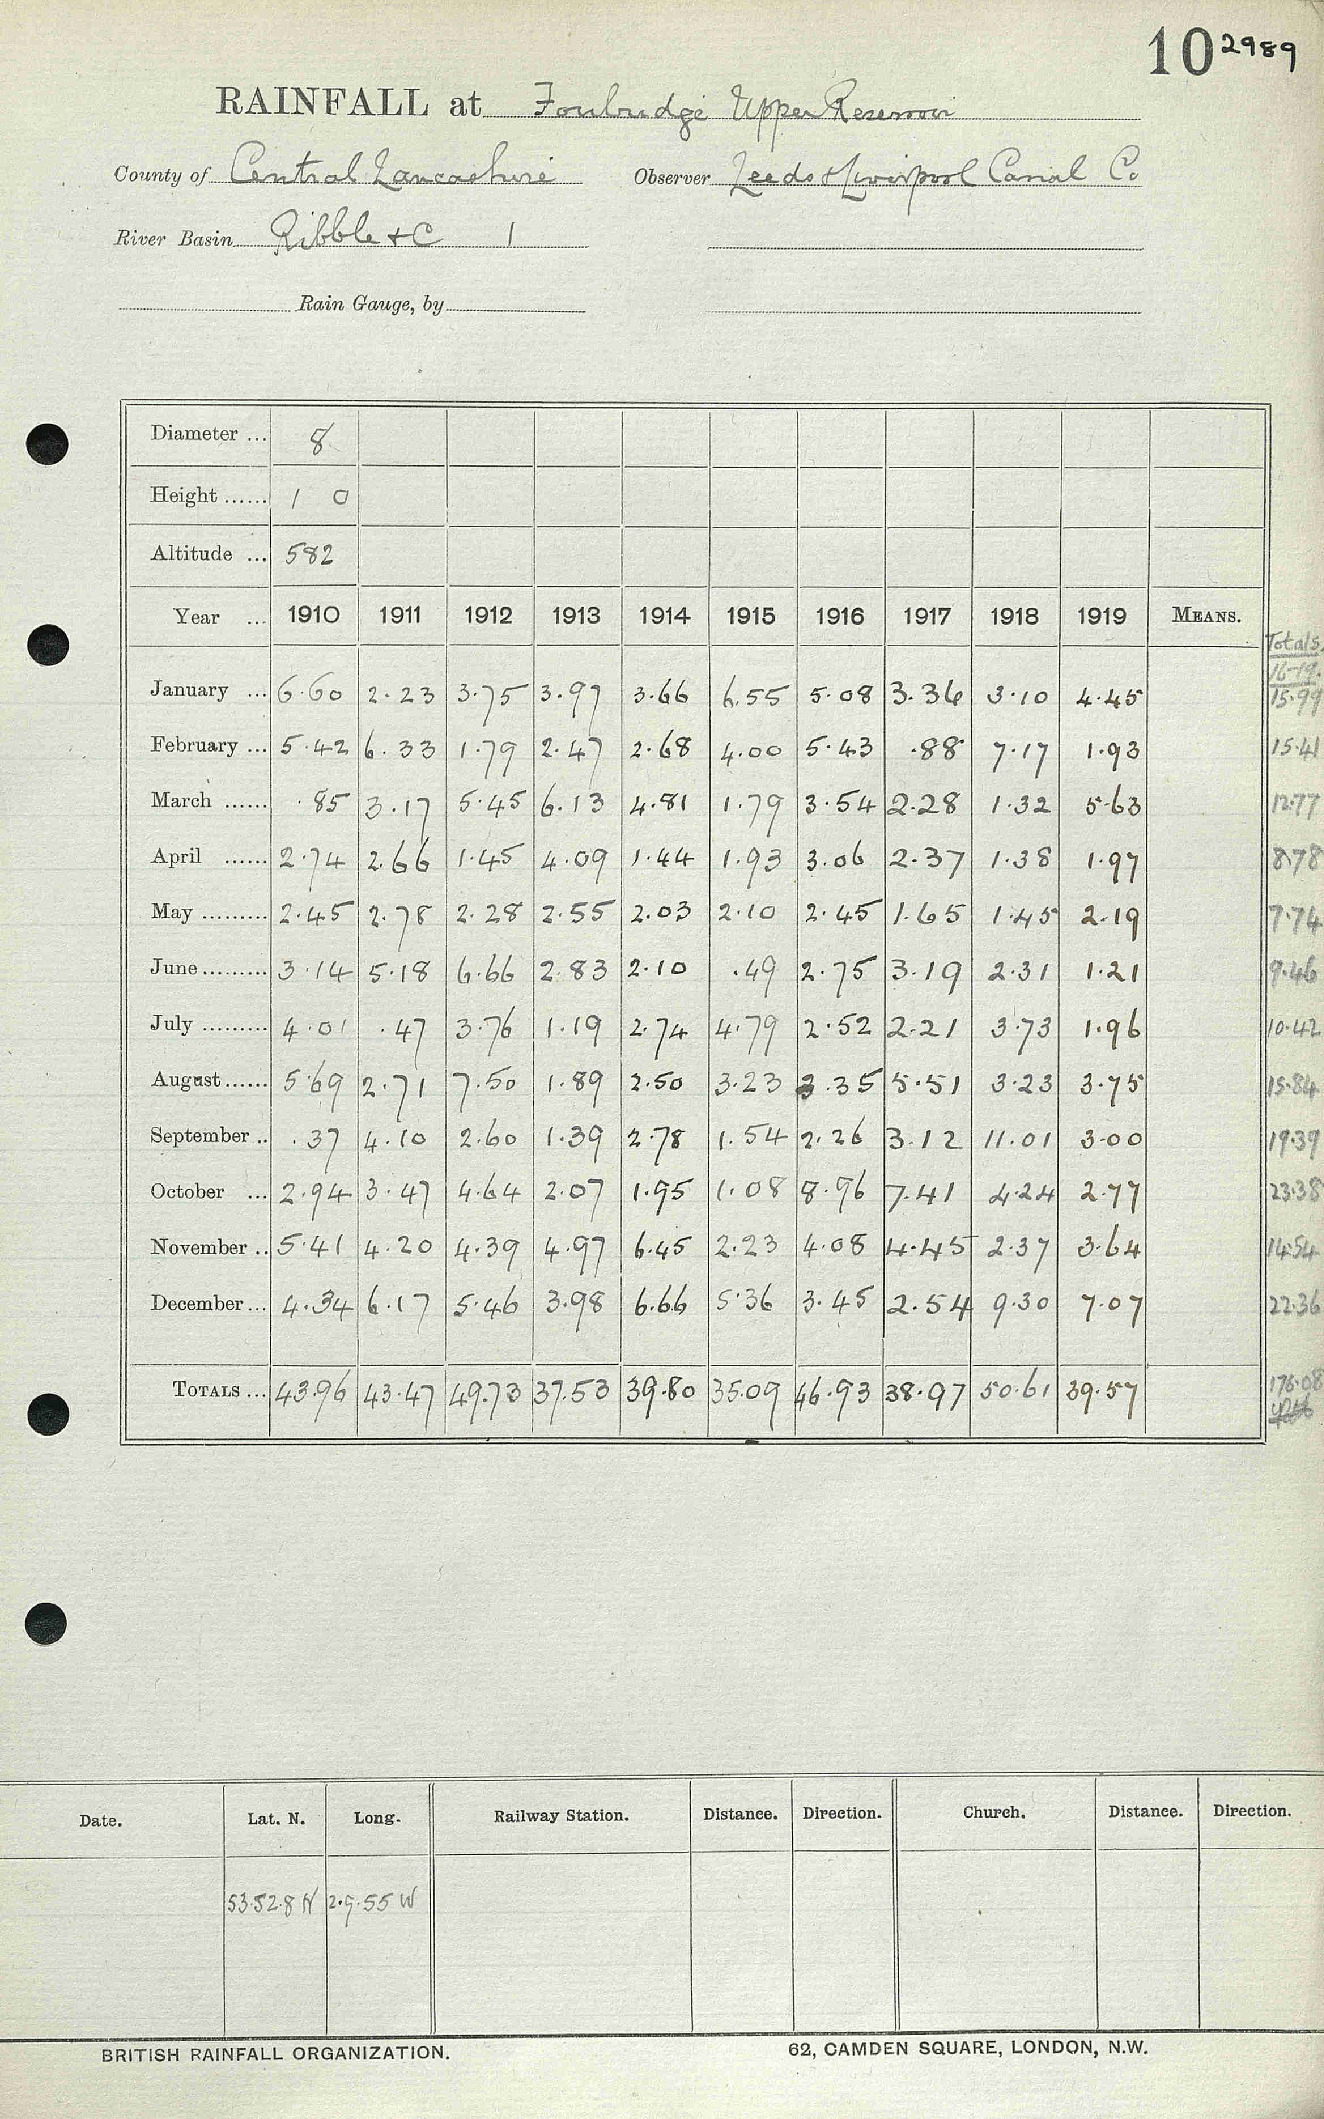 10 2989
RAINFALL at Foulridge Upper Reservoir
County of Central Lancashire Observer Leeds & Liverpool Canal Co
River Basin Ribble + C 1
Rain Gauge, by
Diameter ... 8
Height ...... 1 0
Altitude ... 582
Year ... 1910 1911 1912 1913 1914 1915 1916 1917 1918 1919 MEANS. Totals
16-19.
January ... 6.60 2.23 3.75 3.97 3.66 6.55 5.08 3.36 3.10 4.45 15.99
February ... 5.42 6.33 1.79 2.47 2.68 4.00 5.43 .88 7.17 1.93 15.41
March ...... .85 3.17 5.45 6.13 4.81 1.79 3.54 2.28 1.32 5.63 12.77
April ...... 2.74 2.66 1.45 4.09 1.44 1.93 3.06 2.37 1.38 1.97 8.78
May ......... 2.45 2.78 2.28 2.55 2.03 2.10 2.45 1.65 1.45 2.19 7.74
June ......... 3.14 5.18 6.66 2.83 2.10 .49 2.75 3.19 2.31 1.21 9.46
July ......... 4.01 .47 3.76 1.19 2.74 4.79 2.52 2.21 3.73 1.96 10.42
August ...... 5.69 2.71 7.50 1.89 2.50 3.23 3.35 5.51 3.23 3.75 15.84
September .. .37 4.10 2.60 1.39 2.78 1.54 2.26 3.12 11.01 3.00 19.39
October ... 2.94 3.47 4.64 2.07 1.95 1.08 8.96 7.41 4.24 2.77 23.38
November .. 5.41 4.20 4.39 4.97 6.45 2.23 4.08 4.45 2.37 3.64 14.54
December ... 4.34 6.17 5.46 3.98 6.66 5.36 3.45 2.54 9.30 7.07 22.36
TOTALS ... 43.96 43.47 49.73 37.53 39.80 35.09 46.93 38.97 50.61 39.57 176.08
Date. Lat. N. Long. Railway Station. Distance. Direction. Church. Distance. Direction.
53.52.8 N 2.9.55 W
BRITISH RAINFALL ORGANIZATION. 62, CAMDEN SQUARE, LONDON, N.W.